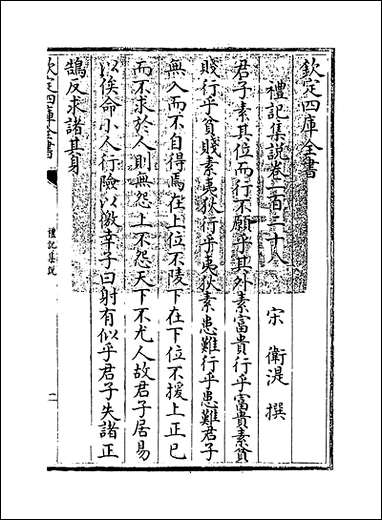 欽定四庫全書
禮記集說卷一百二十八
宋 衛湜 撰
君子素其位而行不願乎其外素富貴行乎富貴素貧
賤行乎貧賤素夷狄行乎夷狄素患難行乎患難君子
無入而不自得焉在上位不陵下在下位不援上正己
而不求於人則無怨上不怨天下不尤人故君子居易
以俟命小人行險以徼幸子曰射有似乎君子失諸正
鵠反求諸其身
欽定四庫全書
禮記集說